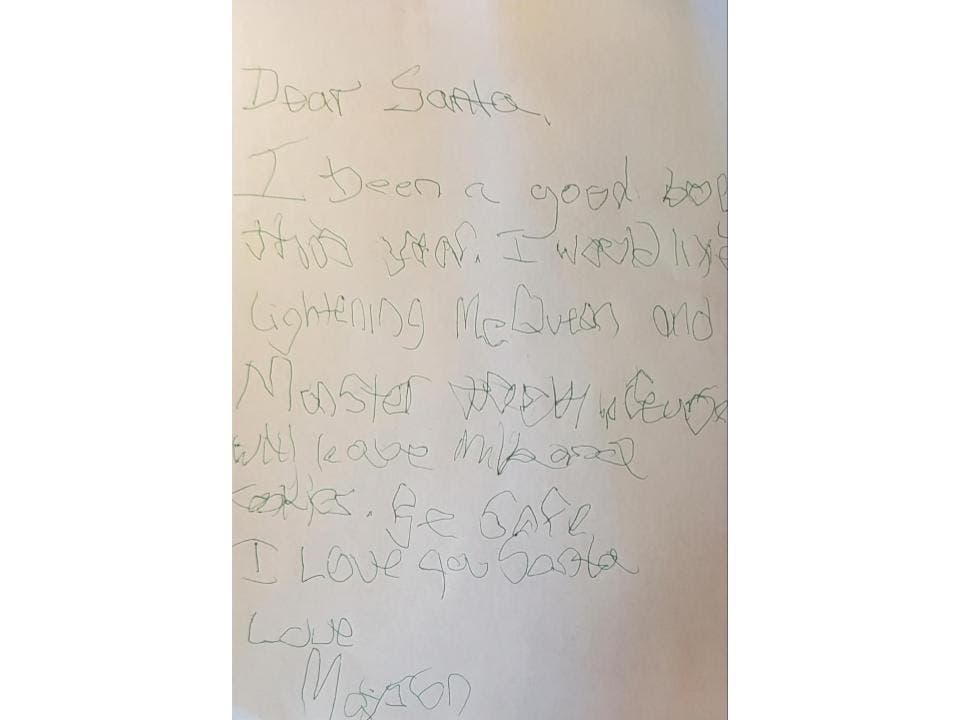 Dear Santa,
I been a good boy
this year. I would like
Lightening McQueen and
Monster
will leave milk and
cookies. Be Safe
I Love you Santa
Love
Mayson